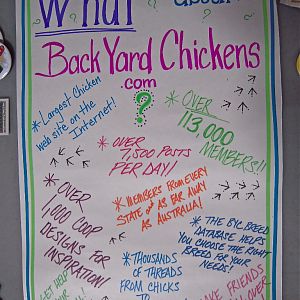 What
About
BackYard Chickens
.com
?
* Largest Chicken
web site on the
Internet!
* OVER
113,000
MEMBERS!!
* OVER
7,500 POSTS
PER DAY!
* OVER
1,000 COOP
DESIGNS FOR
INSPIRATION!
* MEMBERS FROM EVERY
STATE & AS FAR AWAY
AS AUSTRALIA!
* THE BYC BREED
DATABASE HELPS
YOU CHOOSE THE RIGHT
BREED FOR YOUR
NEEDS!
* THOUSANDS
OF THREADS
FROM CHICKS
TO
GET HELP
FRIENDS
OVER